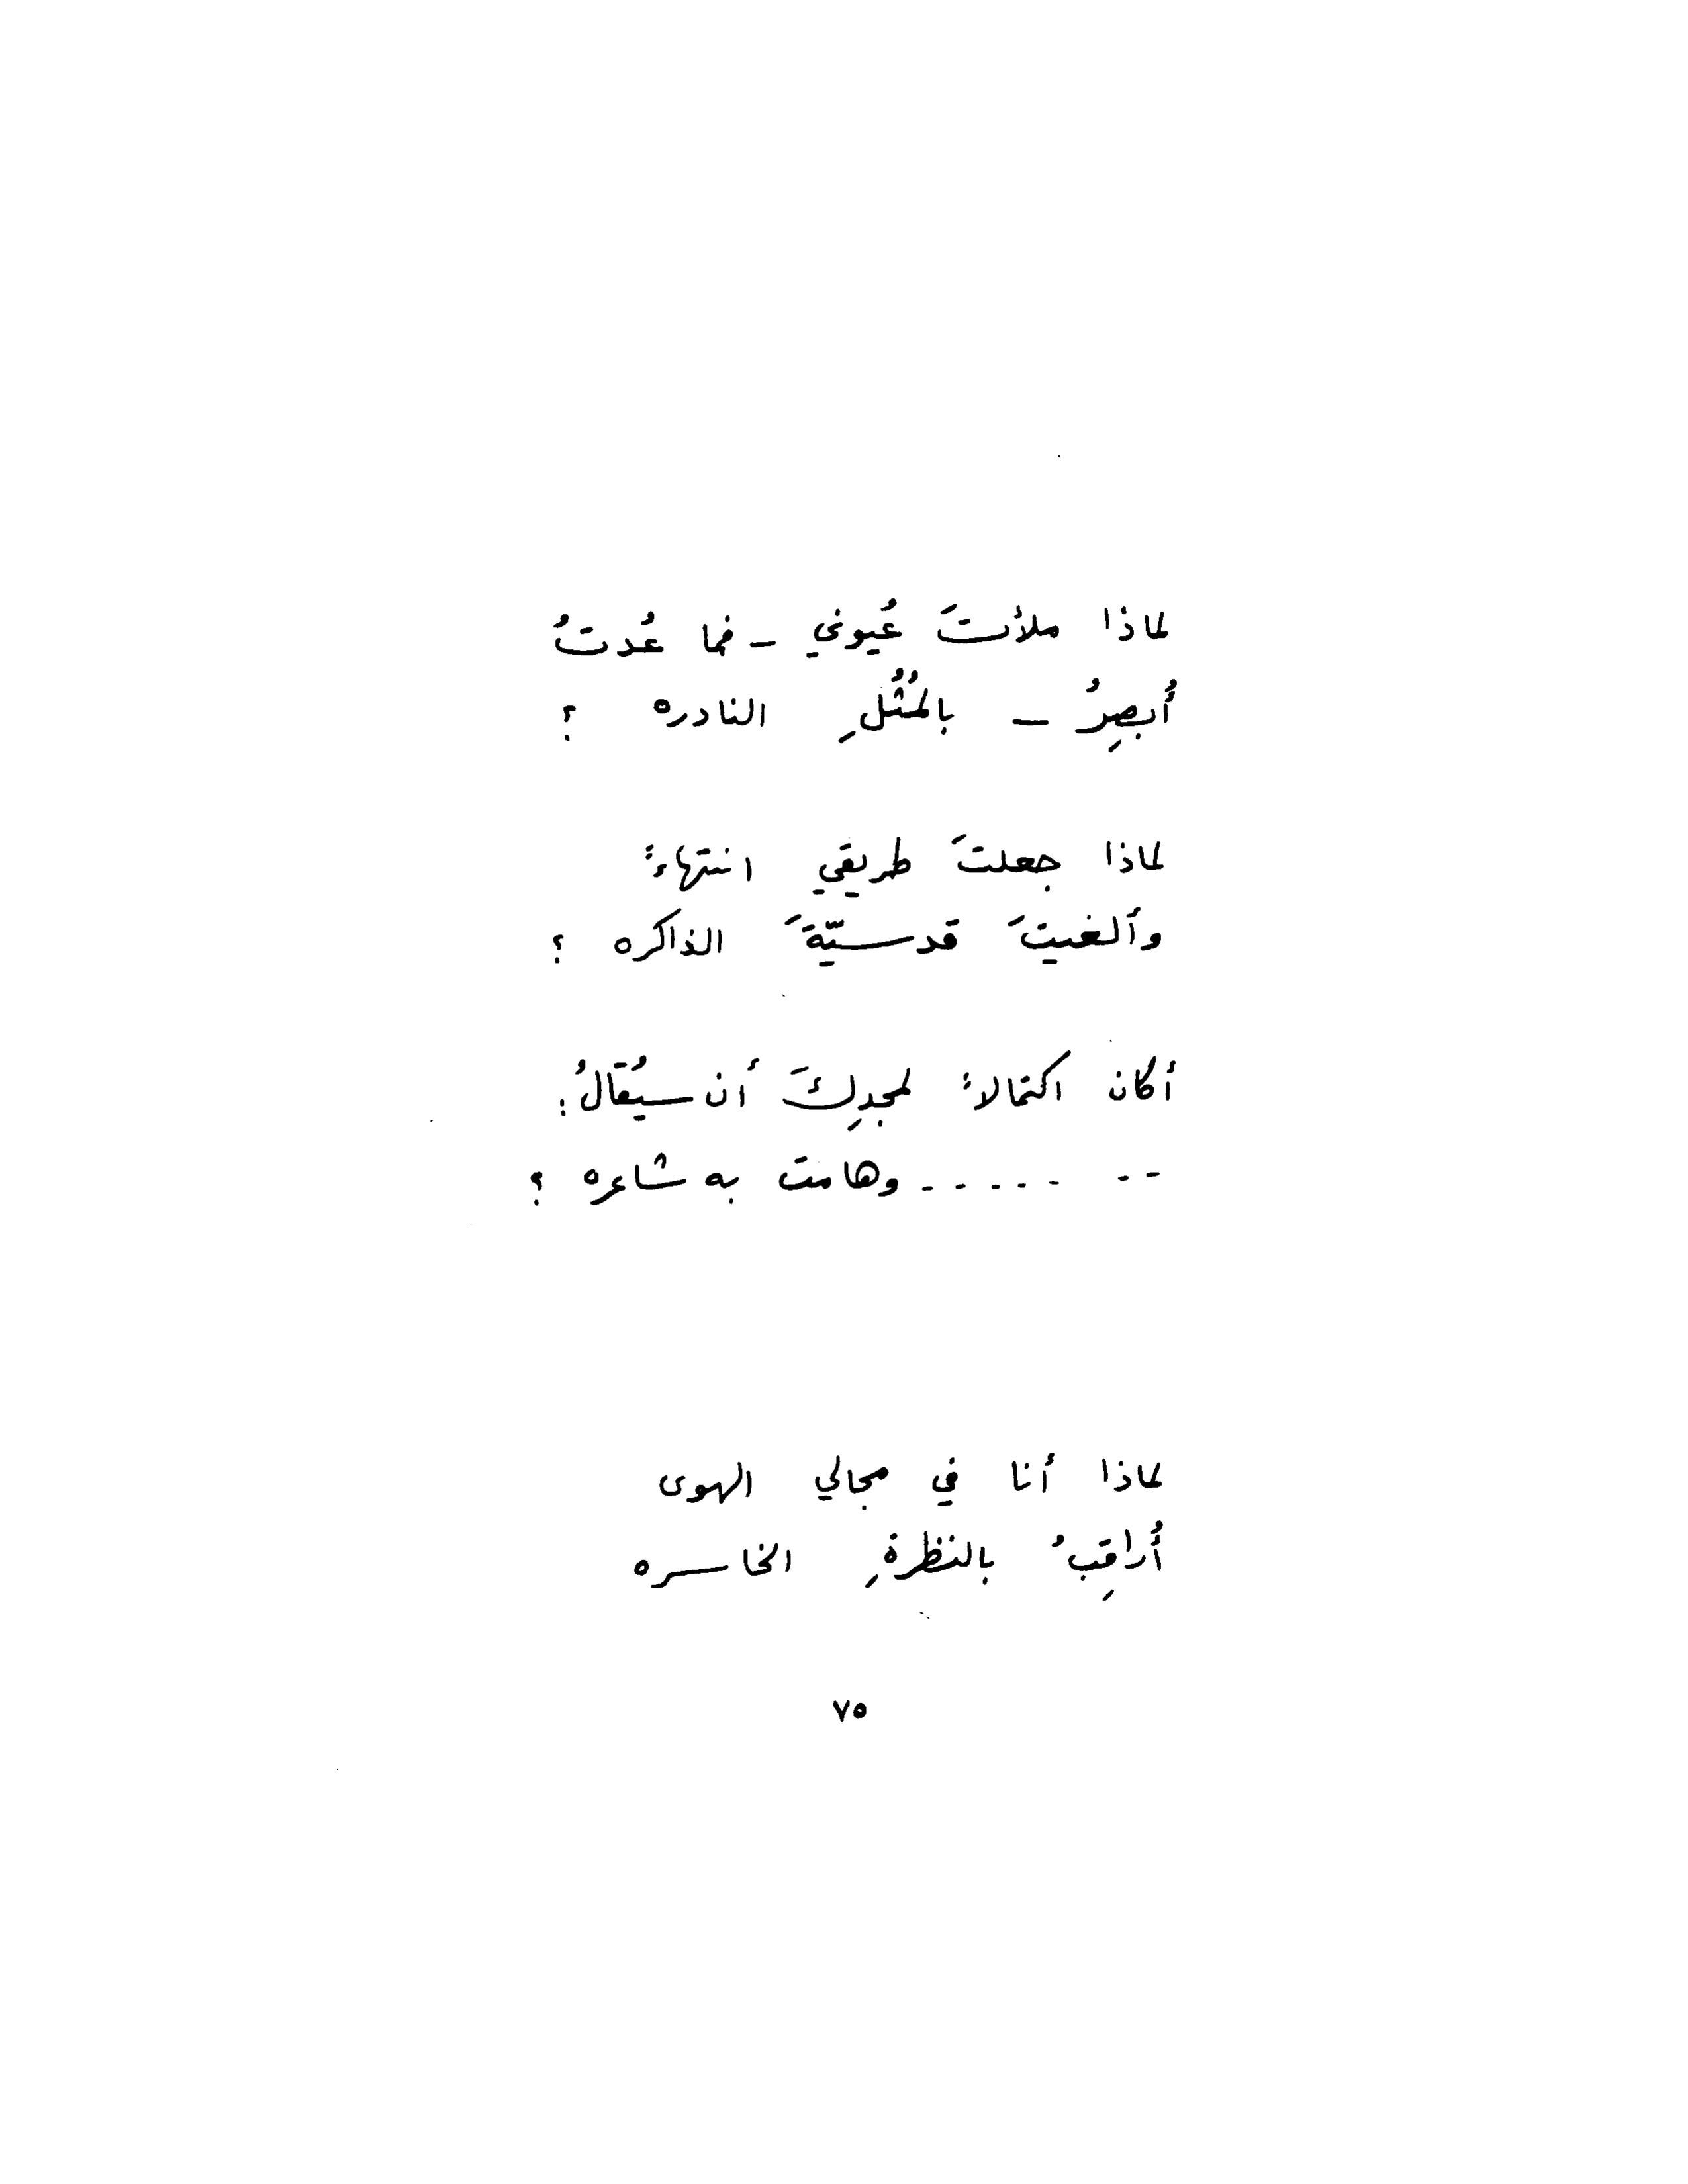 لماذا ملأتَ عُيوني – فما عُدتُ
أُبصِرُ – بالمُثُلِ النادره ؟
لماذا جعلتَ طريقي انتهاءً
وألغيتَ قدسيّةَ الذاكره ؟
أكان اكتمالاً لمجدِكَ أن سيُقالُ :
.. ..... وهامت به شاعره ؟
لماذا أنا في مجالي الهوى
أُراقِبُ بالنظرةِ الخاسره
٧٥